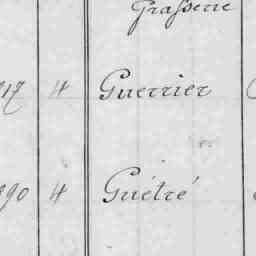 Grasserie
917 4 Guerrier
990 4 Guétré